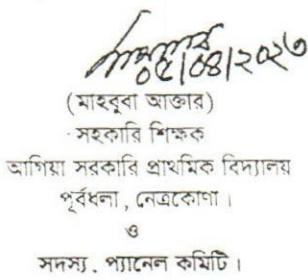 ০৫/০৪/২০২৩
(মাহবুবা আক্তার)
সহকারি শিক্ষক
আগিয়া সরকারি প্রাথমিক বিদ্যালয়
পূর্বধলা, নেত্রকোণা।
ও
সদস্য, প্যানেল কমিটি।